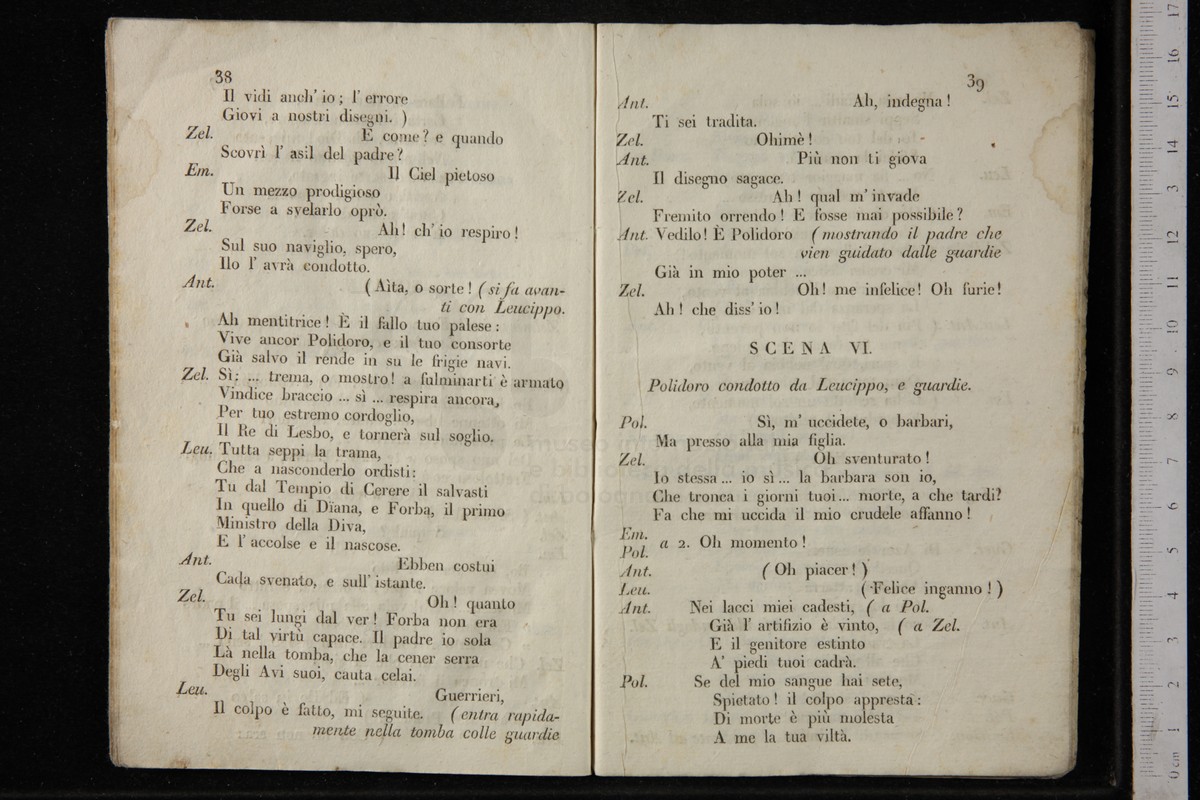 38
Il vidi anch' io; l' errore
Giovi a nostri disegni. )
Zel. E come? e quando
Scovrì l' asil del padre?
Em. Il Ciel pietoso
Un mezzo prodigioso
Forse a svelarlo oprò.
Zel. Ah! ch' io respiro!
Sul suo naviglio, spero,
Ilo l' avrà condotto.
Ant. ( Aìta, o sorte! ( si fa avan-
ti con Leucippo.
Ah mentitrice! È il fallo tuo palese:
Vive ancor Polidoro, e il tuo consorte
Già salvo il rende in su le frigie navi.
Zel. Sì: ... trema, o mostro! a fulminarti è armato
Vindice braccio ... sì ... respira ancora,
Per tuo estremo cordoglio,
Il Re di Lesbo, e tornerà sul soglio.
Leu. Tutta seppi la trama,
Che a nasconderlo ordisti:
Tu dal Tempio di Cerere il salvasti
In quello di Dïana, e Forba, il primo
Ministro della Diva,
E l' accolse e il nascose.
Ant. Ebben costui
Cada svenato, e sull' istante.
Zel. Oh! quanto
Tu sei lungi dal ver! Forba non era
Di tal virtù capace. Il padre io sola
Là nella tomba, che la cener serra
Degli Avi suoi, cauta celai.
Leu. Guerrieri,
Il colpo è fatto, mi seguite. ( entra rapida-
mente nella tomba colle guardie
39
Ant. Ah, indegna!
Ti sei tradita.
Zel. Ohimè!
Ant. Più non ti giova
Il disegno sagace.
Zel. Ah! qual m' invade
Fremito orrendo! E fosse mai possibile?
Ant. Vedilo! È Polidoro ( mostrando il padre che
vien guidato dalle guardie
Già in mio poter ...
Zel. Oh! me infelice! Oh furie!
Ah! che diss' io!
SCENA VI.
Polidoro condotto da Leucippo, e guardie.
Pol. Sì, m' uccidete, o barbari,
Ma presso alla mia figlia.
Zel. Oh sventurato!
Io stessa ... io sì ... la barbara son io,
Che tronca i giorni tuoi ... morte, a che tardi?
Fa che mi uccida il mio crudele affanno!
Em.
Pol. a 2. Oh momento!
Ant. ( Oh piacer! )
Leu. ( Felice inganno! )
Ant. Nei lacci miei cadesti, ( a Pol.
Già l' artifizio è vinto, ( a Zel.
E il genitore estinto
A' piedi tuoi cadrà.
Pol. Se del mio sangue hai sete,
Spietato! il colpo appresta:
Di morte è più molesta
A me la tua viltà.